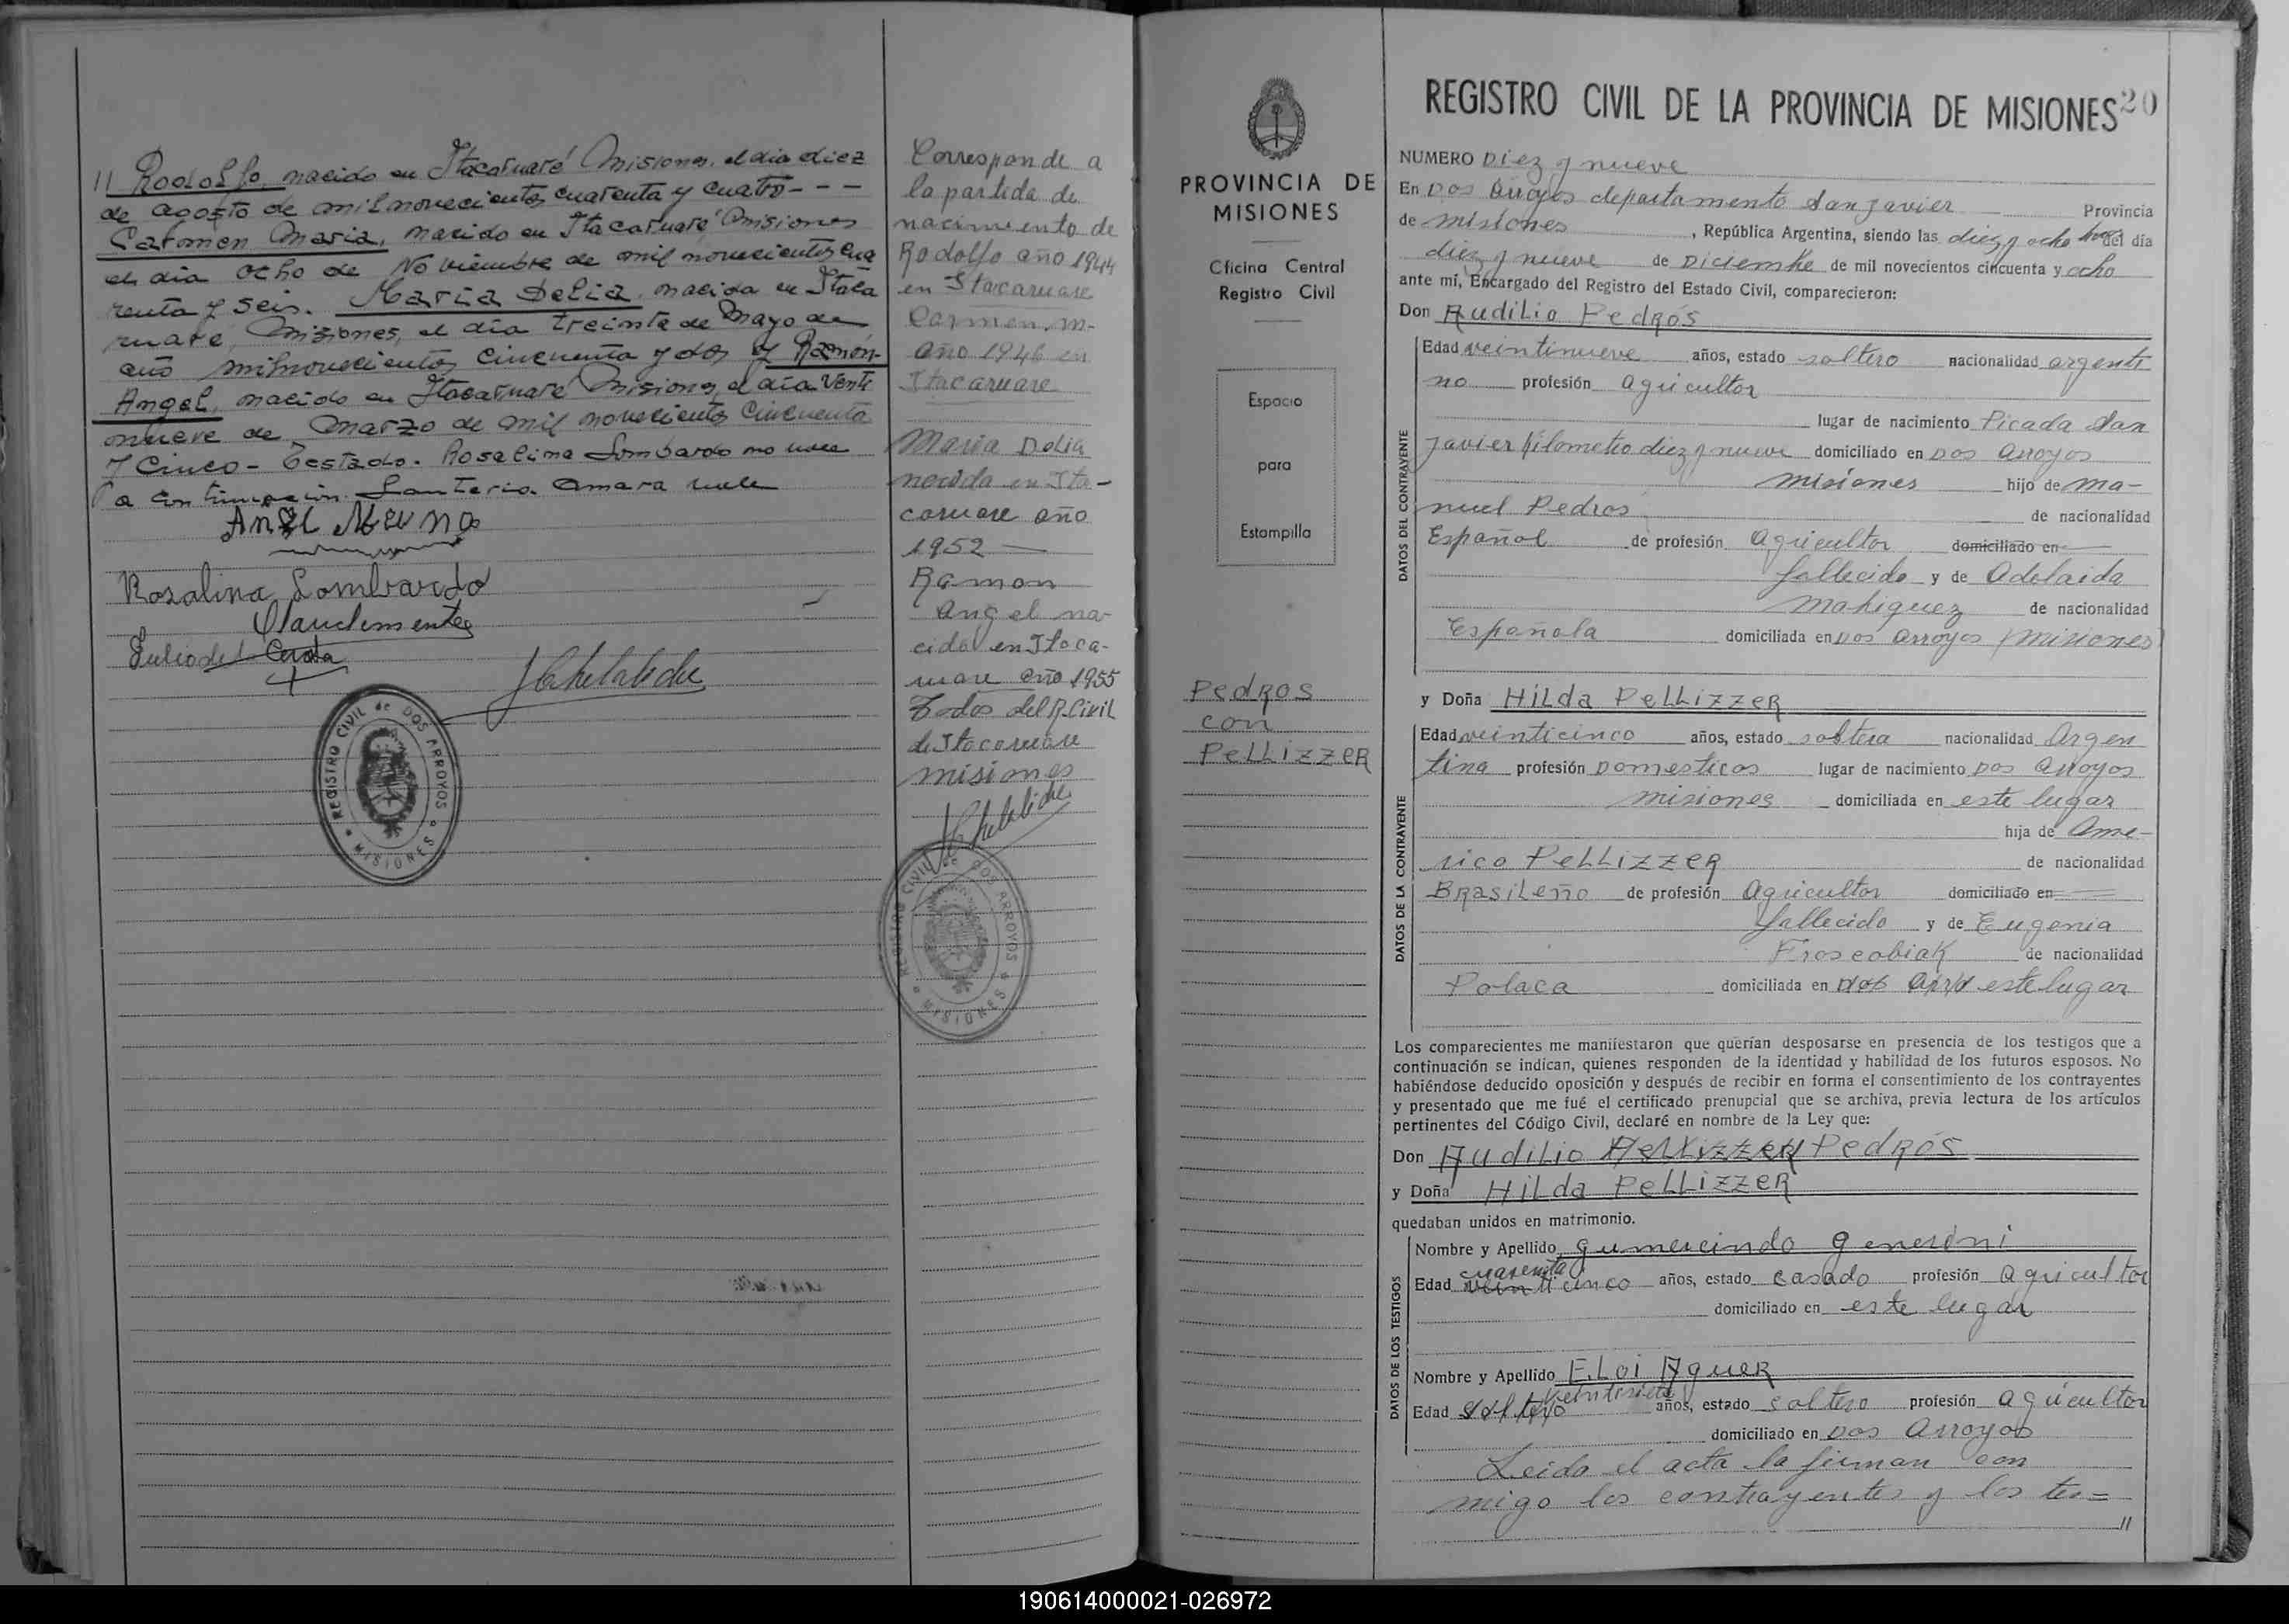 11 Rodolfo, nacido en Itacaruaré Misiones, el dia diez
de agosto de mil novecientos cuarenta y cuatro - - -
Carmen Maria, nacido en Itacaruaré Misiones
el día ocho de Noviembre de mil novecientos cua
renta y seis. Maria Delia, nacida en Itaca
ruare, Misiones, el día treinta de Mayo de
año milnovecientos cincuenta y dos y Ramón-
Angel, nacido en Itacaruaré Misiones, el día Venti
nueve de Marzo de mil novecientos Cincuenta
y Cinco - Testado. Rosalina Lombardo no vale
a continuación. vale
Rosalina Lombardo
REGISTRO CIVIL de DOS ARROYOS
MISIONES
Corresponde a
la partida de
nacimiento de
Rodolfo año 1944
en Itacaruare
Carmen M-
año 1946 en
Itacaruare
Maria Delia
nacida en Ita-
caruare año
1952 —
Ramon
Angel na-
cido en Itaca-
ruare año 1955
Todos del R. Civil
de Itacaruare
misiones
REGISTRO CIVIL de DOS ARROYOS
MISIONES
PROVINCIA DE
MISIONES
Oficina Central
Registro Civil
Espacio
para
Estampilla
Pedros
con
PeLLizzeR
REGISTRO CIVIL DE LA PROVINCIA DE MISIONES 20
NUMERO Diez y nueve
En Dos Arroyos departamento San Javier Provincia
de misiones, República Argentina, siendo las diez y ocho horas del día
diez y nueve de Diciembre de mil novecientos cincuenta y ocho
ante mí, Encargado del Registro del Estado Civil, comparecieron:
Don AudiLio Pedros
DATOS DEL CONTRAYENTE
Edad veintinueve años, estado soltero nacionalidad argenti
no profesión agricultor
lugar de nacimiento Picada San
Javier kilometro diez y nueve domiciliado en Dos Arroyos
misiones hijo de Ma-
nuel Pedros de nacionalidad
Español de profesión agricultor domiciliado en
fallecido y de Adelaida
de nacionalidad
Española domiciliada en Dos Arroyos (misiones)
y Doña HiLda PeLLizzeR
DATOS DE LA CONTRAYENTE
Edad veinticinco años, estado soltera nacionalidad Argen
tina profesión Domesticos lugar de nacimiento Dos Arroyos
misiones domiciliada en este lugar
hija de Ame-
rico PeLLizzeR de nacionalidad
BRasiLeño de profesión Agricultor domiciliado en
fallecido y de Eugenia
de nacionalidad
Polaca domiciliada en este lugar
Los comparecientes me manifestaron que querían desposarse en presencia de los testigos que a
continuación se indican, quienes responden de la identidad y habilidad de los futuros esposos. No
habiéndose deducido oposición y después de recibir en forma el consentimiento de los contrayentes
y presentado que me fué el certificado prenupcial que se archiva, previa lectura de los artículos
pertinentes del Código Civil, declaré en nombre de la Ley que:
Don AudiLio PeLLizzeR Pedros
y Doña HiLda PeLLizzeR
quedaban unidos en matrimonio.
DATOS DE LOS TESTIGOS
Nombre y Apellido gumercindo generini
cuarenta
Edad veinticinco años, estado casado profesión agricultor
domiciliado en este lugar
Nombre y Apellido ELoi AgueR
veintisiete
Edad soltero años, estado soltero profesión agricultor
domiciliado en Dos Arroyos
Leida el acta la firman con
migo los contrayentes y los tes=
11
190614000021-026972